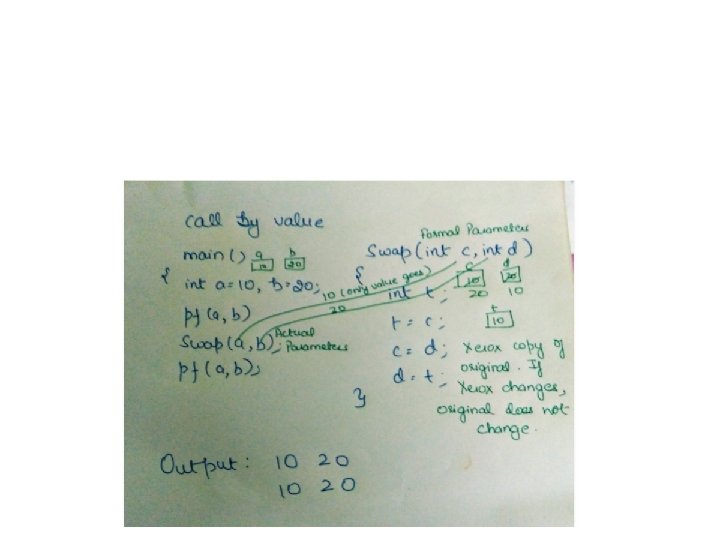 Call by value
main() a b
10 20
{ int a=10, b=20;
pf(a,b)
Swap(a,b); Actual Parameters
pf(a,b);
10 (only value goes)
20
Formal Parameters
Swap(int c, int d)
{ c d
10 20
int t; 20 10
t
t = c; 10
c = d; Xerox copy of
d = t; original. If
Xerox changes,
} original does not
change.
Output: 10 20
10 20